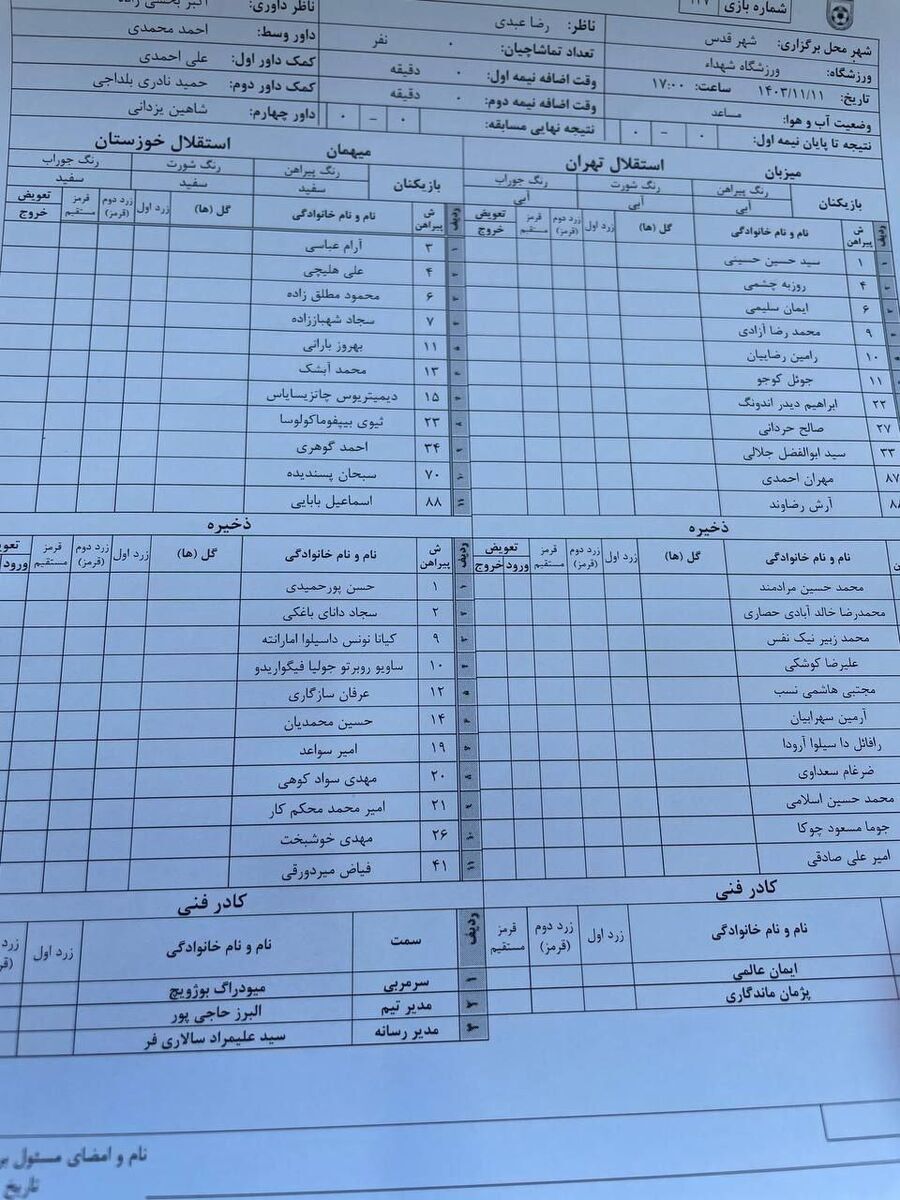 شماره بازی
شهر محل برگزاری: شهر قدس
ورزشگاه: ورزشگاه شهداء
تاریخ: ۱۴۰۳/۱۱/۱۱ ساعت: ۱۷:۰۰
وضعیت آب و هوا: مساعد
نتیجه تا پایان نیمه اول: ۰ - ۰
ناظر: رضا عبدی
تعداد تماشاچیان: ۰ نفر
وقت اضافه نیمه اول: ۰ دقیقه
وقت اضافه نیمه دوم: ۰ دقیقه
نتیجه نهایی مسابقه: ۰ - ۰
ناظر داوری: اکبر بخشی زاده
داور وسط: احمد محمدی
کمک داور اول: علی احمدی
کمک داور دوم: حمید نادری بلداجی
داور چهارم: شاهین یزدانی
میزبان استقلال تهران
بازیکنان رنگ پیراهن رنگ شورت رنگ جوراب
آبی آبی آبی
ردیف ش پیراهن نام و نام خانوادگی گل (ها) زرد اول زرد دوم (قرمز) قرمز مستقیم تعویض خروج
۱ سید حسین حسینی
۴ روزبه چشمی
۶ ایمان سلیمی
۹ محمد رضا آزادی
۱۰ رامین رضاییان
۱۱ جوئل کوجو
۲۲ ابراهیم دیدر اندونگ
۲۷ صالح حردانی
۳۳ سید ابوالفضل جلالی
۸۷ مهران احمدی
آرش رضاوند
ذخیره
نام و نام خانوادگی گل (ها) زرد اول زرد دوم (قرمز) قرمز مستقیم تعویض ورود خروج
محمد حسین مرادمند
محمدرضا خالد آبادی حصاری
محمد زبیر نیک نفس
علیرضا کوشکی
مجتبی هاشمی نسب
آرمین سهرابیان
رافائل دا سیلوا آرودا
ضرغام سعداوی
محمد حسین اسلامی
جوما مسعود چوکا
امیر علی صادقی
کادر فنی
نام و نام خانوادگی زرد اول زرد دوم (قرمز) قرمز مستقیم
ایمان عالمی
پژمان ماندگاری
میهمان استقلال خوزستان
بازیکنان رنگ پیراهن رنگ شورت رنگ جوراب
سفید سفید سفید
ردیف ش پیراهن نام و نام خانوادگی گل (ها) زرد اول زرد دوم (قرمز) قرمز مستقیم تعویض خروج
۱ ۳ آرام عباسی
۲ ۴ علی هلیچی
۳ ۶ محمود مطلق زاده
۴ ۷ سجاد شهباززاده
۵ ۱۱ بهروز بارانی
۶ ۱۳ محمد آبشک
۷ ۱۵ دیمیتریوس چاتزیسایاس
۸ ۲۳ ثیوی بیپفوماکولوسا
۹ ۳۴ احمد گوهری
۱۰ ۷۰ سبحان پسندیده
۱۱ ۸۸ اسماعیل بابایی
ذخیره
ردیف ش پیراهن نام و نام خانوادگی گل (ها) زرد اول زرد دوم (قرمز) قرمز مستقیم ورود
۱ ۱ حسن پورحمیدی
۲ ۲ سجاد دانای باغکی
۳ ۹ کیانا نونس داسیلوا امارانته
۴ ۱۰ ساویو روبرتو جولیا فیگواریدو
۵ ۱۲ عرفان سازگاری
۶ ۱۴ حسین محمدیان
۷ ۱۹ امیر سواعد
۸ ۲۰ مهدی سواد کوهی
۹ ۲۱ امیر محمد محکم کار
۱۰ ۲۶ مهدی خوشبخت
۱۱ ۴۱ فیاض میردورقی
کادر فنی
ردیف سمت نام و نام خانوادگی زرد اول
۱ سرمربی میودراگ بوژوویچ
۲ مدیر تیم البرز حاجی پور
۳ مدیر رسانه سید علیمراد سالاری فر
نام و امضای مسئول
تاریخ